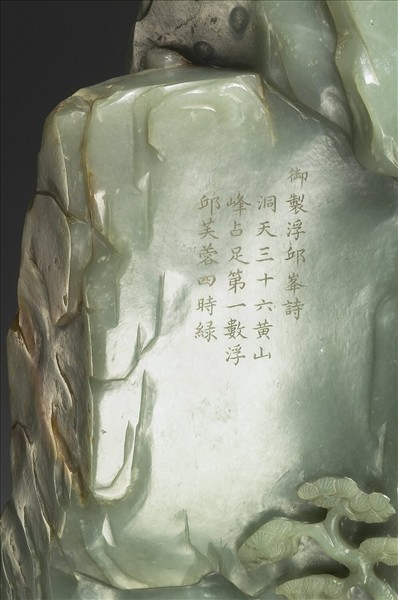 御製浮邱峯詩
洞天三十六黄山
峰占足第一數浮
邱芙蓉四時緑